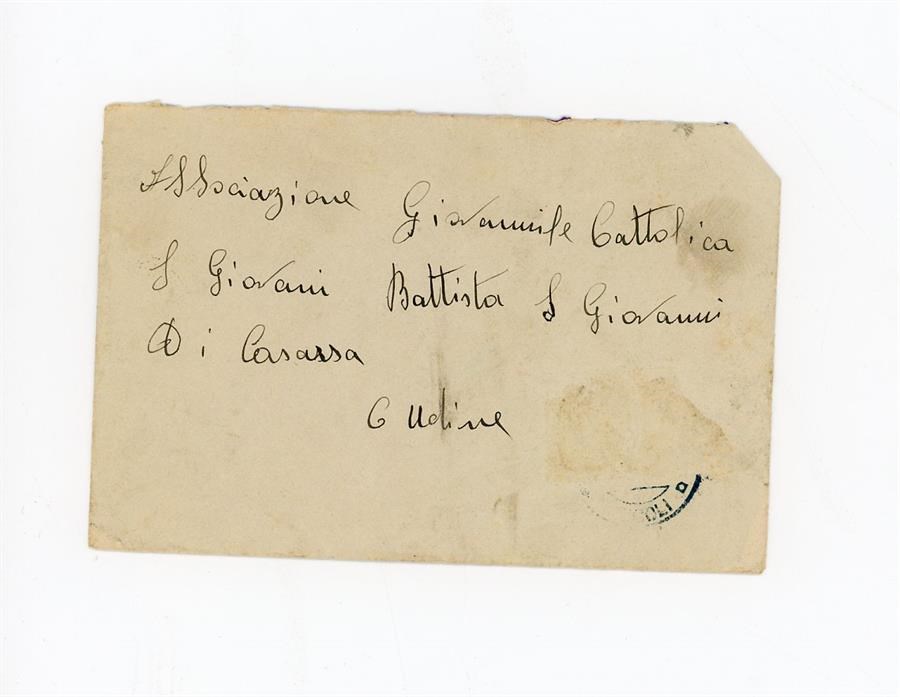 Associazione Giovannile Cattolica
S Giovani Battista S Giovanni
Di Casassa
Udine
OLI